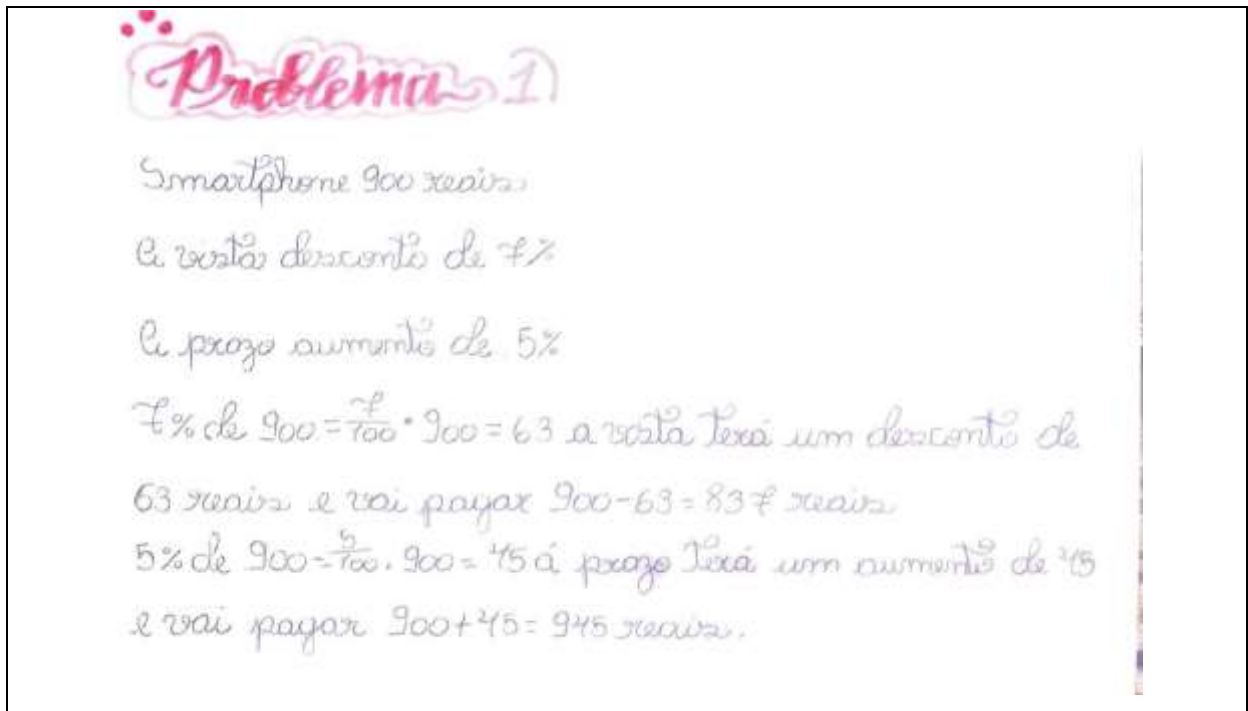 Problema 1
Smartphone 900 reais
A vista desconto de 7%
A prazo aumento de 5%
7% de 900 = 7/100 · 900 = 63 a vista terá um desconto de
63 reais e vai pagar 900-63 = 837 reais
5% de 900 = 5/100 . 900 = 45 á prazo terá um aumento de 45
e vai pagar 900+45 = 945 reais.